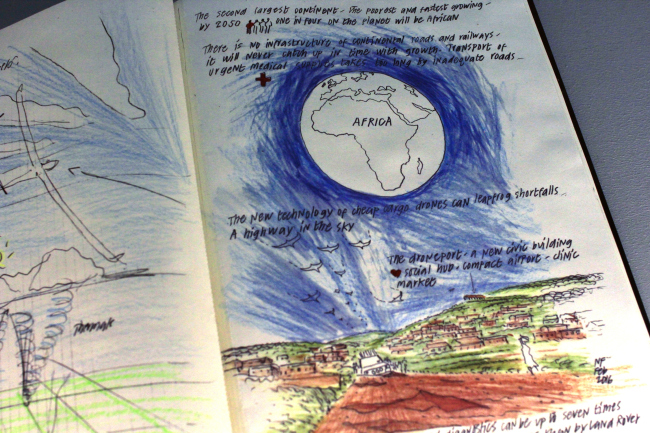 The second largest continent - The poorest and fastest growing -
by 2050 one in four on the planet will be African
There is no infrastructure of continental roads and railways -
it will never catch up in time with growth. Transport of
urgent medical supplies takes too long by inadequate roads -
AFRICA
The new technology of cheap cargo drones can leapfrog shortfalls -
A highway in the sky
The droneport - a new civic building
social hub - compact airport - clinic
market
NF
FEB
2016
diagnostics can be up to seven times
by Land Rover